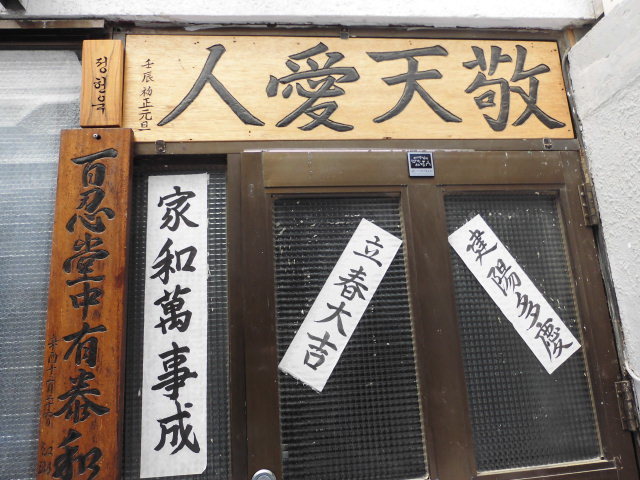 敬天愛人
壬辰初正元旦
정현욱
百忍堂中有泰和
家和萬事成
立春大吉
建陽多慶